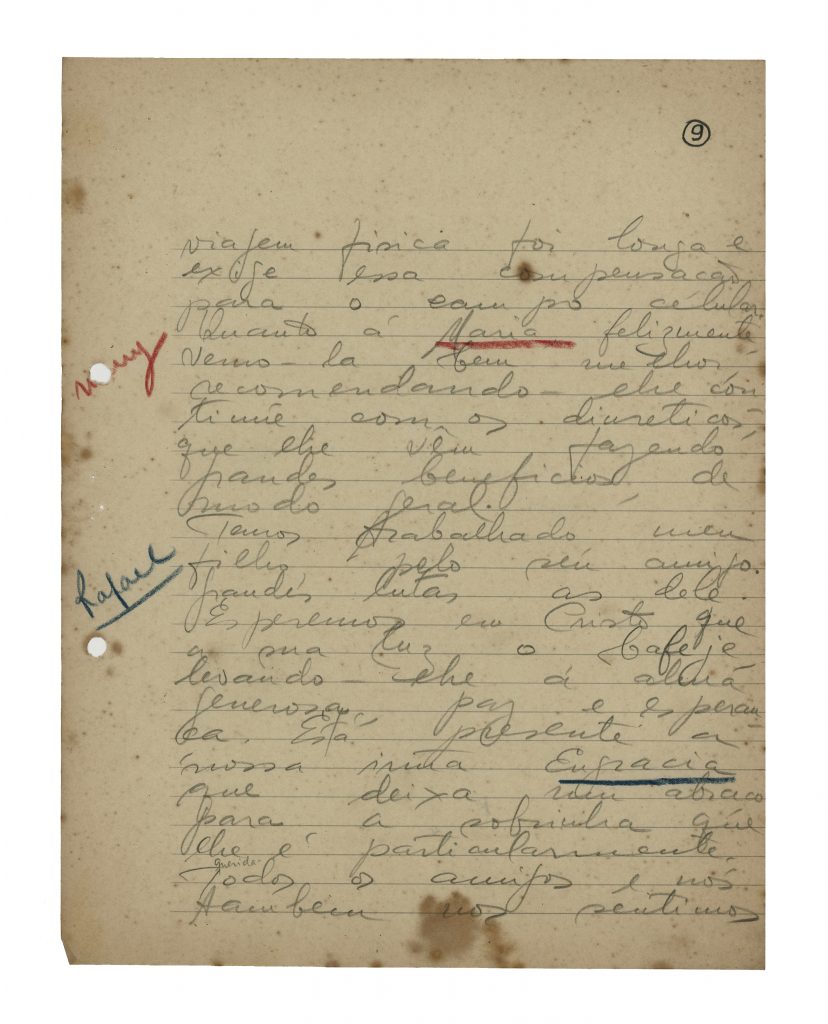 9
viagem fisica foi longa e
exige essa compensação
para o campo celular.
Quanto á Maria felizmente
vemo-la bem melhor
recomendando-lhe con
tinúe com os diureticos,
que lhe vêm fazendo
grandes beneficios de
modo geral.
Temos trabalhado meu
filho pelo seu amigo.
Rafael
Grandes lutas as dele.
Esperemos em Cristo que
a sua luz o bafeje
levando-lhe á alma
generosa, paz e esperan
ça. Está presente a
nossa irmã Engracia
que deixa um abraço
para a sobrinha que
lhe é particularmente
querida.
Todos os amigos e nós
tambem nos sentimos